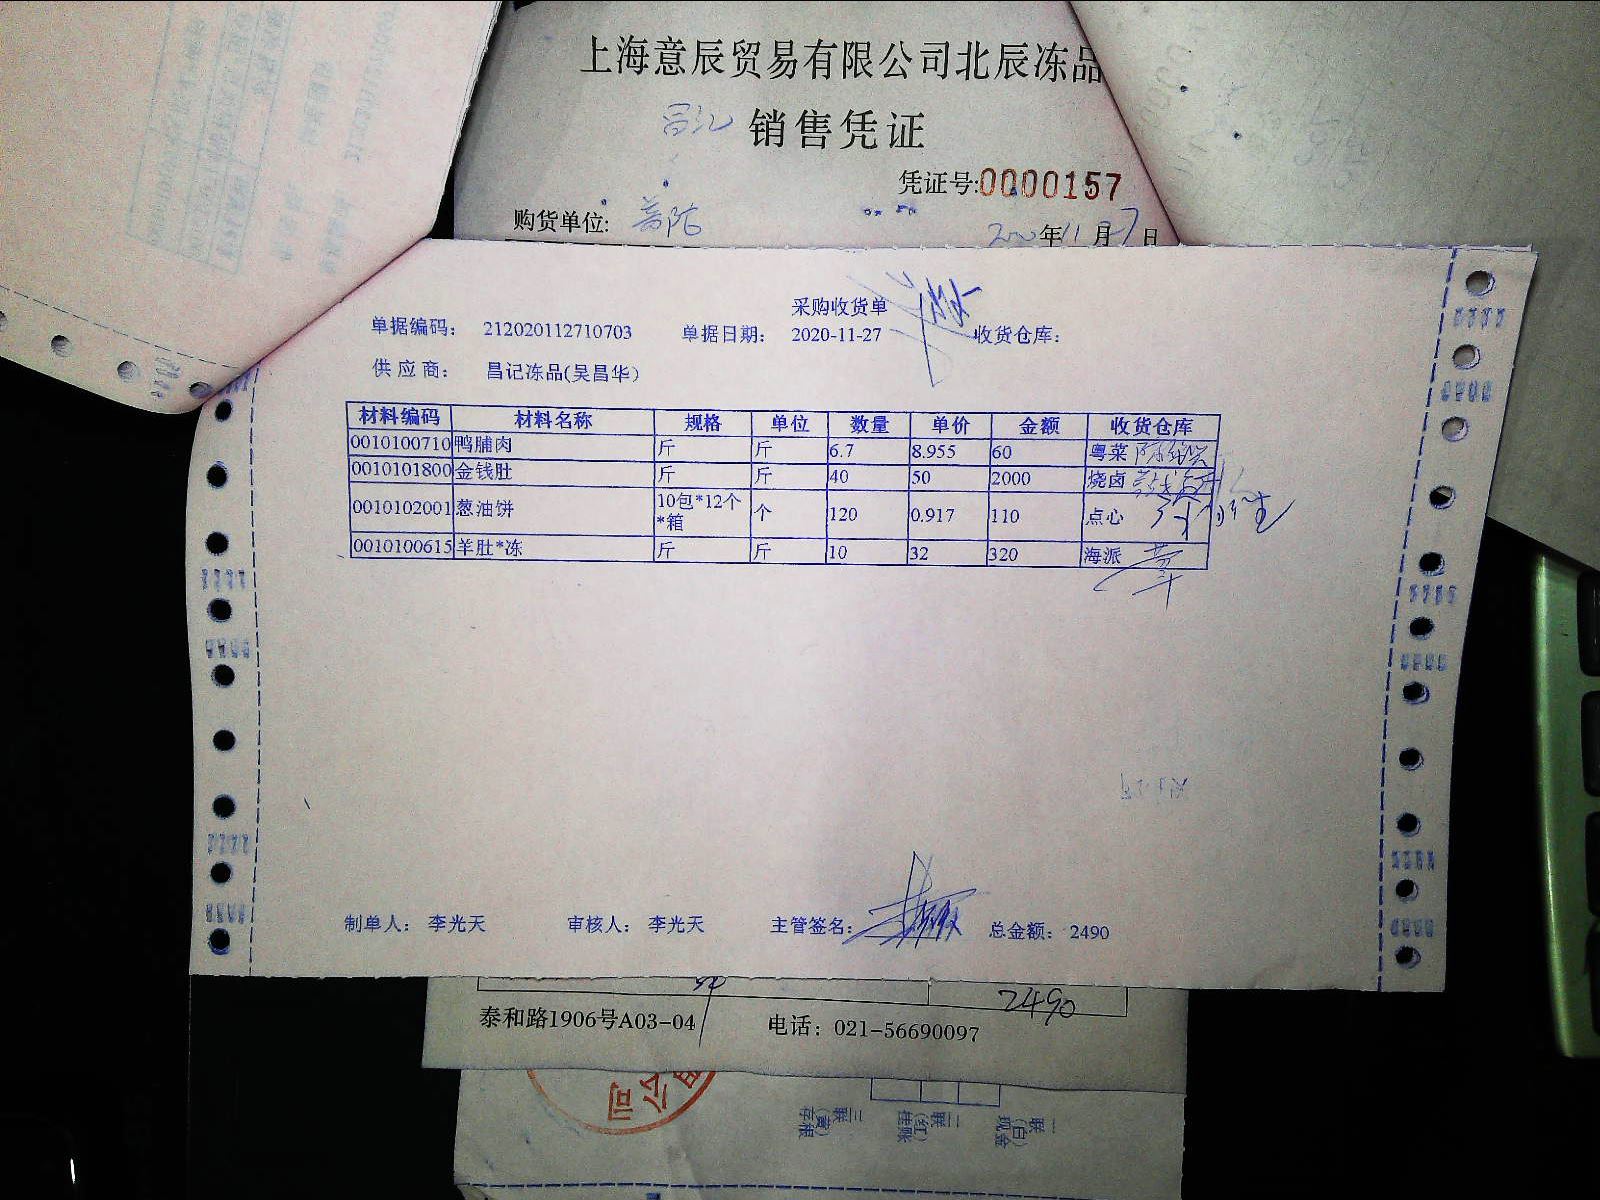 上海意辰贸易有限公司北辰冻品
昌记 销售凭证
凭证号:0000157
购货单位:
2020年11月27日
采购收货单
单据编码: 212020112710703 单据日期: 2020-11-27 收货仓库:
供应商: 昌记冻品(吴昌华)
材料编码 材料名称 规格 单位 数量 单价 金额 收货仓库
0010100710 鸭脯肉 斤 斤 6.7 8.955 60 粤菜
0010101800 金钱肚 斤 斤 40 50 2000 烧卤
0010102001 葱油饼 10包*12个*箱 个 120 0.917 110 点心
0010100615 羊肚*冻 斤 斤 10 32 320 海派
制单人: 李光天 审核人: 李光天 主管签名: 总金额: 2490
2490
泰和路1906号A03-04 电话: 021-56690097
公司
一联(白)现金
二联(红)挂账
三联(黄)存根